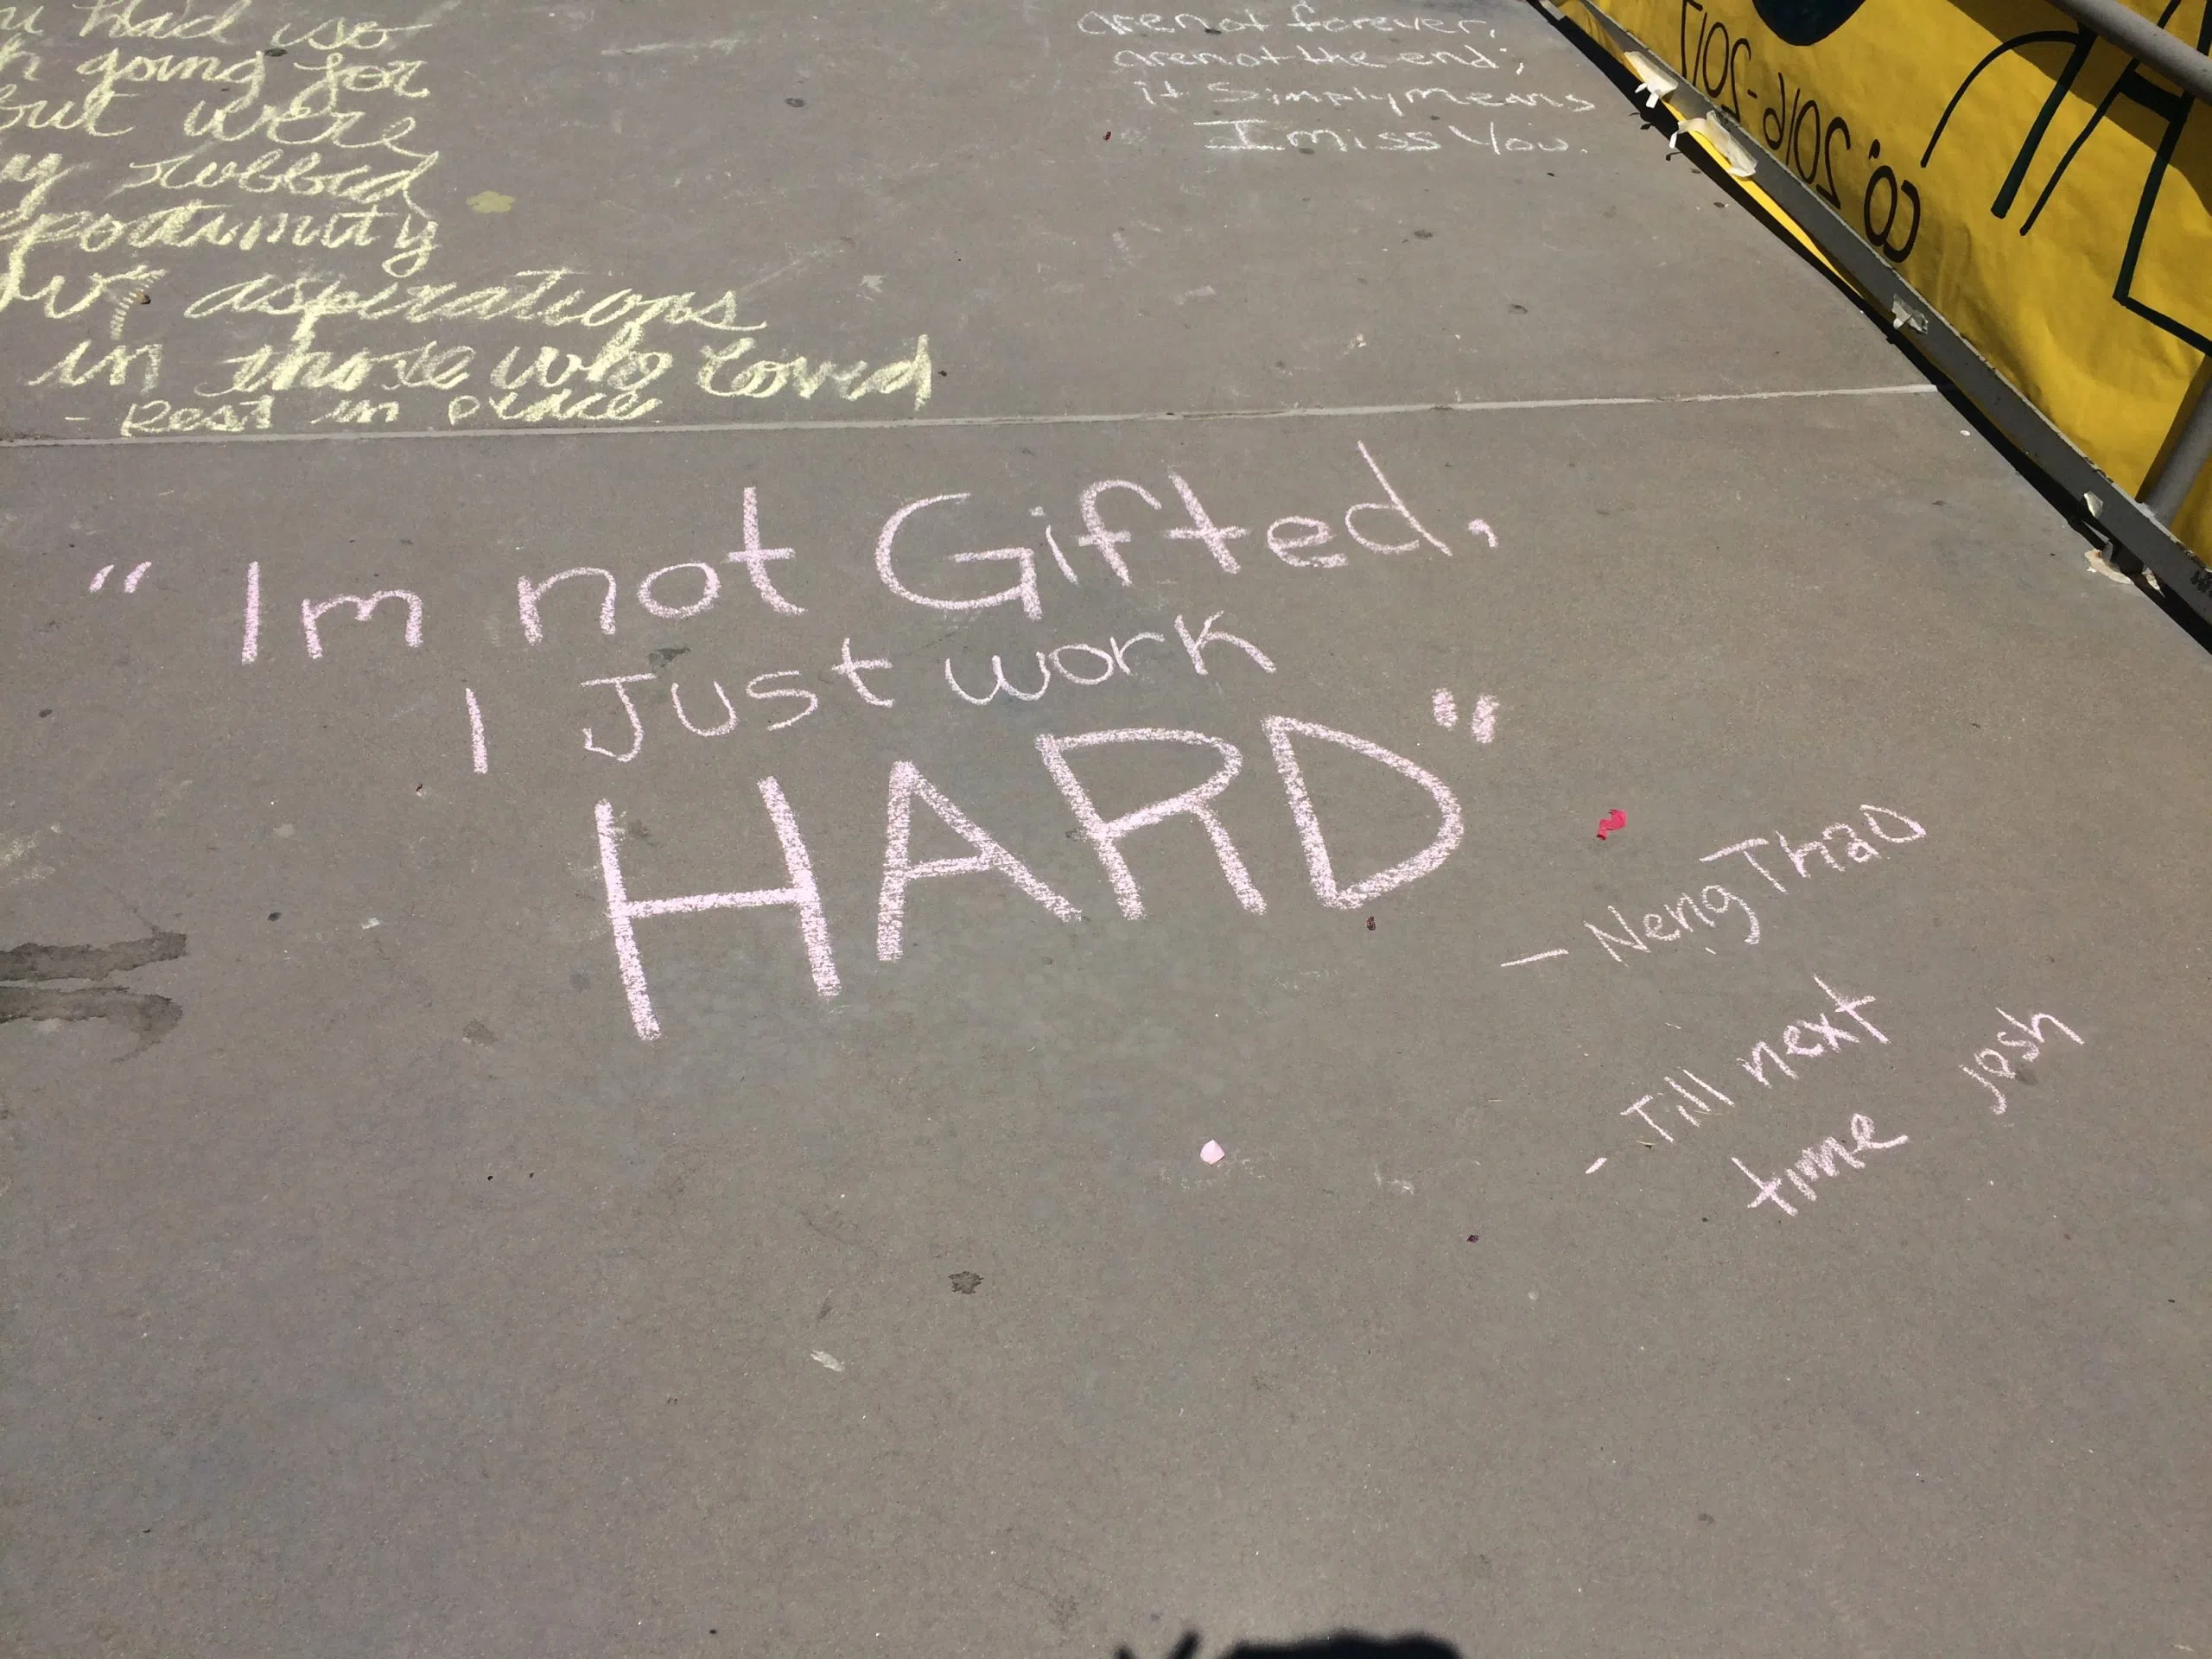 had so
going for
but were
robbed
aspirations
in those who loved
- Rest in peace
are not forever,
are not the end;
it simply means
I miss You.
CO. 2016-2017
"Im not Gifted,
I Just work
HARD"
- Neng Thao
- Till next
time Josh